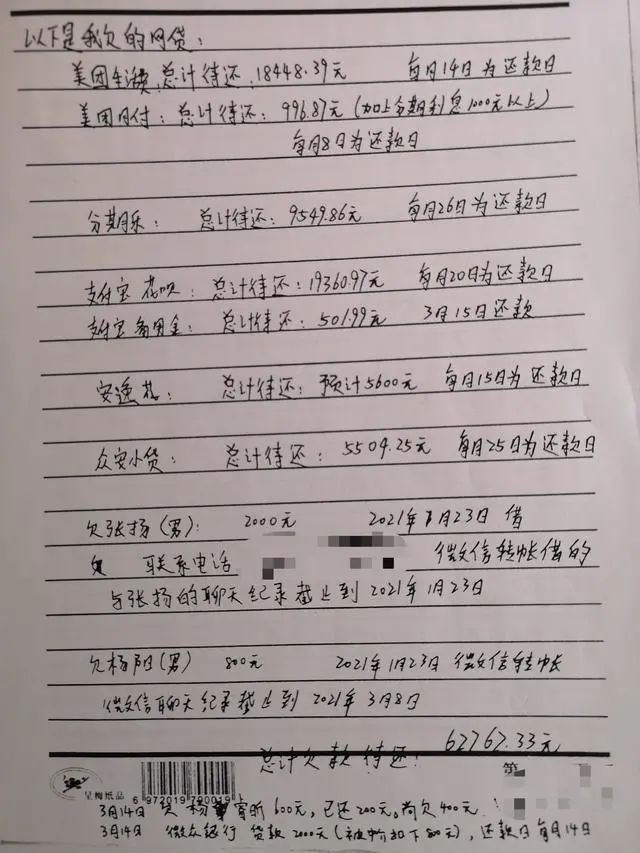 以下是我欠的网贷：
美团生活费：总计待还：18448.39元 每月14日为还款日
美团月付：总计待还：996.87元（加上分期利息1000元以上）
每月8日为还款日
分期乐：总计待还：9549.86元 每月26日为还款日
支付宝花呗：总计待还：19360.97元 每月20日为还款日
支付宝备用金：总计待还：501.99元 3月15日还款
安逸花：总计待还：预计5600元 每月15日为还款日
众安小贷：总计待还：5504.25元 每月25日为还款日
欠张扬（男）：2000元 2021年1月23日借
联系电话 微信转帐借的
与张扬的聊天纪录截止到2021年1月23日
欠杨阳（男） 800元 2021年1月23日 微信转帐
微信聊天纪录截止到2021年3月8日
总计欠款待还：62762.33元
呈梅纸品 第
6 972019 790019
3月14日 欠杨 600元，已还200元，尚欠400元.
3月14日 微众银行 贷款2000元（被 扣下800元），还款日每月14日